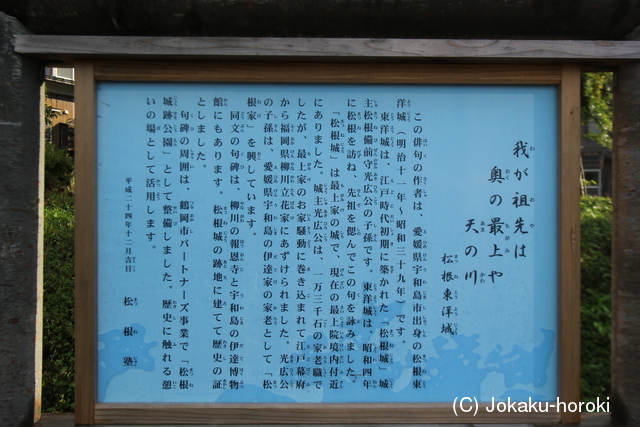 我が祖先は
奥の最上や
天の川
松根東洋城
この俳句の作者は、愛媛県宇和島市出身の松根東
洋城(明治十一年～昭和三十九年)です。
東洋城は、江戸時代初期に築かれた「松根城」城
主松根備前守光広公の子孫です。東洋城は、昭和四年
に松根を訪ね、先祖を偲んでこの句を詠みました。
「松根城」は最上家の城で、現在の最上院境内付近
にありました。城主光広公は、一万三千石の家老職で
したが、最上家のお家騒動に巻き込まれて江戸幕府
から福岡県柳川立花家にあずけられました。光広公
の子孫は、愛媛県宇和島の伊達家の家老として「松
根家」を興しています。
同文の句碑は、柳川の報恩寺と宇和島の伊達博物
館にもあります。松根城の跡地に建てて歴史の証
としました。
句碑の周囲は、鶴岡市パートナーズ事業で「松根
城跡公園」として整備しました。歴史に触れる憩
いの場として活用します。
平成二十四年十二月吉日
松根塾
(C) Jokaku-horoki